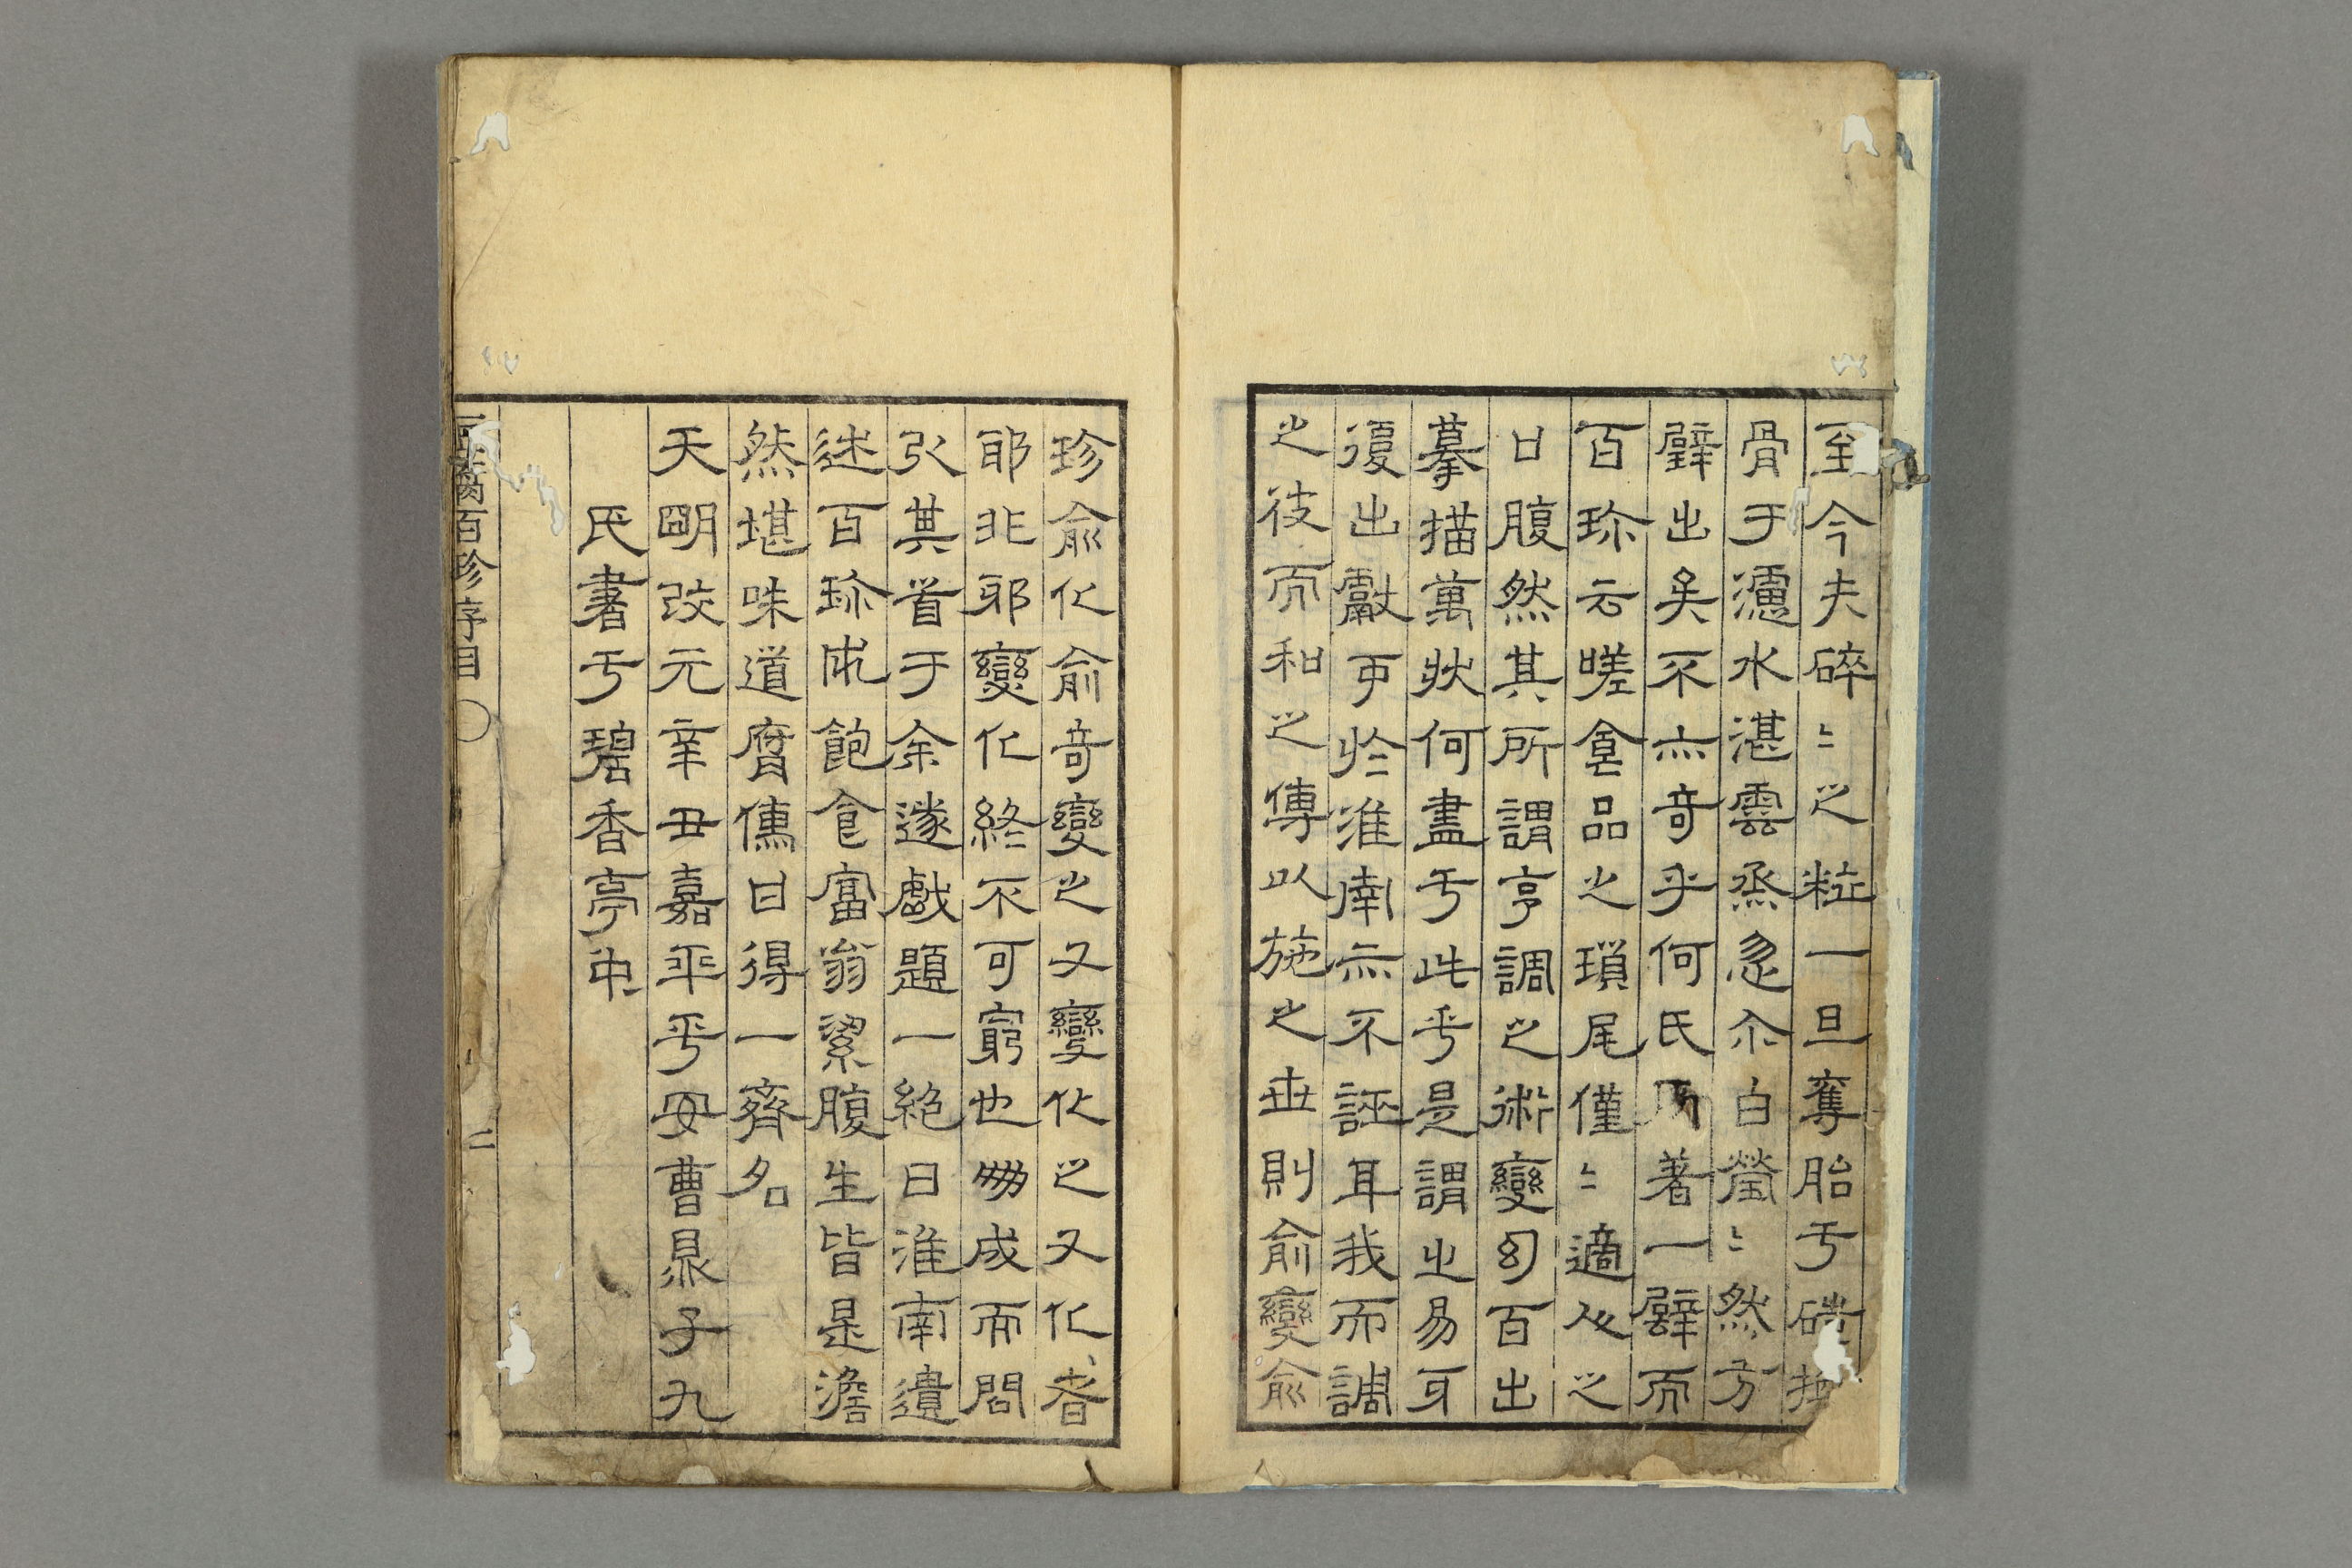 至今夫碎〻之粒一旦奪胎亐磑換
骨于濾水湛雲烝忽尒白瑩〻然方
壁出矣不亦奇乎何氏所著一壁而
百珎云嗟食品之瑣尾僅〻適人之
口腹然其所謂亨調之術變幻百出
摹描萬狀何盡亐此乎是謂之易牙
復出獻可於淮南亦不誣耳我而調
之彼而和之傳以施之世則俞變俞
珍俞化俞奇變之又變化之又化者
耶非耶變化終不可窮也刕成而問
引其首于余遂戲題一絶曰淮南遺
述百珎成飽食富翁絜腹生皆是澹
然堪味道腐儒日得一齊名
天明改元辛丑嘉平平安曹㬎子九
氏書亐碧香亭中
豆腐百珍序目 〇 二